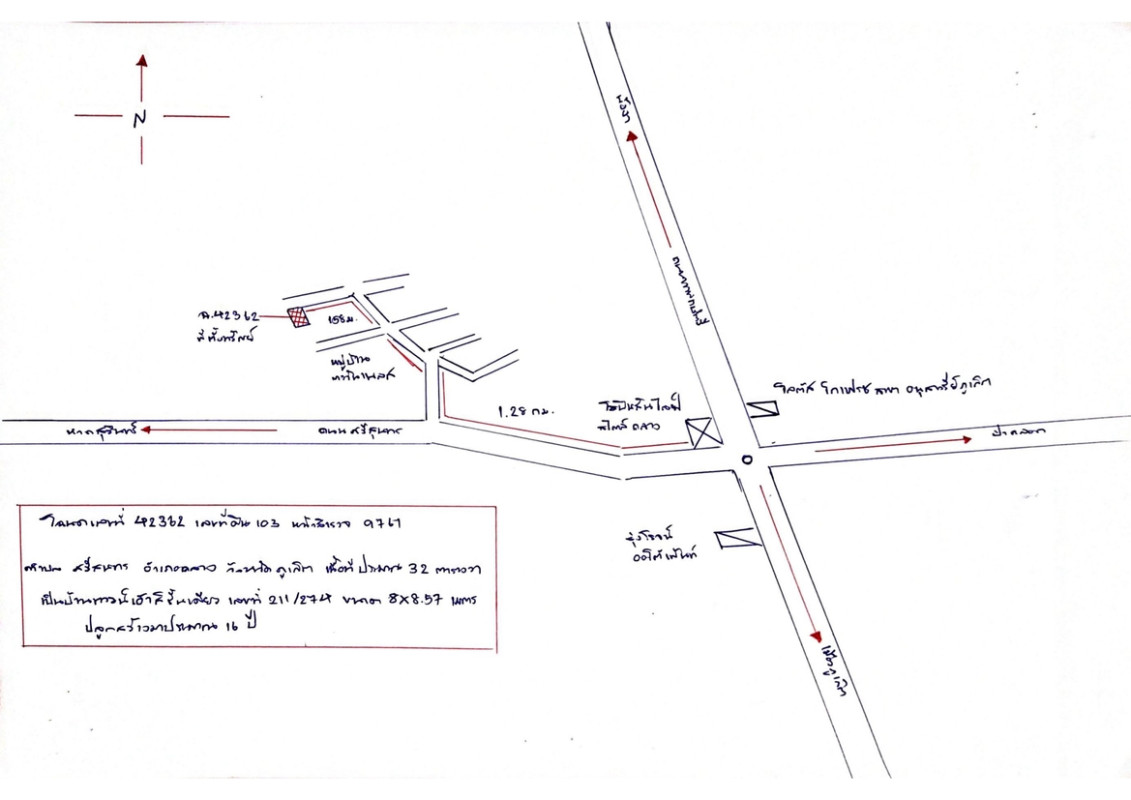 N
พังงา
ถนนเทพกระษัตรี
ฉ.42362
ที่ตั้งทรัพย์
158 ม.
หมู่บ้าน
1.28 กม.
ไลฟ์
ถลาง
โลตัส โกเฟรช สาขา อนุสาวรีย์ภูเก็ต
ป่าคลอก
หาดสุรินทร์
ถนนศรีสุนทร
รุ่งโรจน์
เมืองภูเก็ต
โฉนดเลขที่ 42362 เลขที่ดิน 103 หน้าสำรวจ 9761
ตำบล ศรีสุนทร อำเภอถลาง จังหวัด ภูเก็ต เนื้อที่ ประมาณ 32 ตารางวา
เป็นบ้านทาวน์เฮ้าส์ชั้นเดียว เลขที่ 211/274 ขนาด 8X8.57 เมตร
ปลูกสร้างมาประมาณ 16 ปี